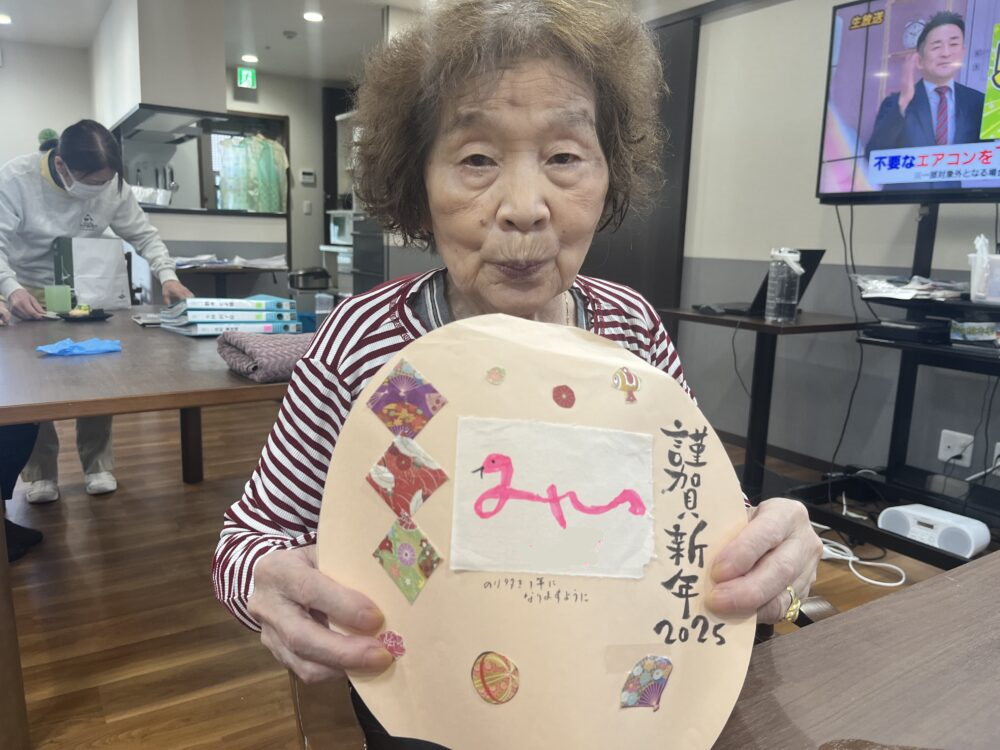 生放送
不要なエアコンを
※一部対象外となる場
謹賀新年
2025
みやこ
のりタきき1年に
なりますように